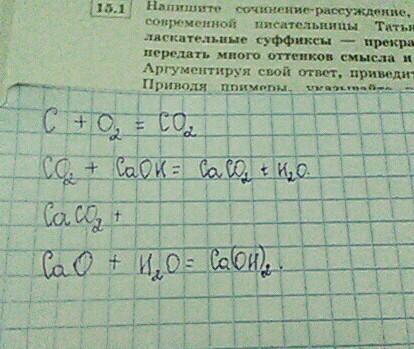 15.1 Напишите сочинение-рассуждение,
современной писательницы Тать
ласкательные суффиксы — прекра
передать много оттенков смысла и
Аргументируя свой ответ, приведит
Приводя примеры, указывайте
C + O₂ = CO₂
CO₂ + CaOH = CaCO₂ + H₂O.
CaCO₂ +
CaO + H₂O = Ca(OH)₂.